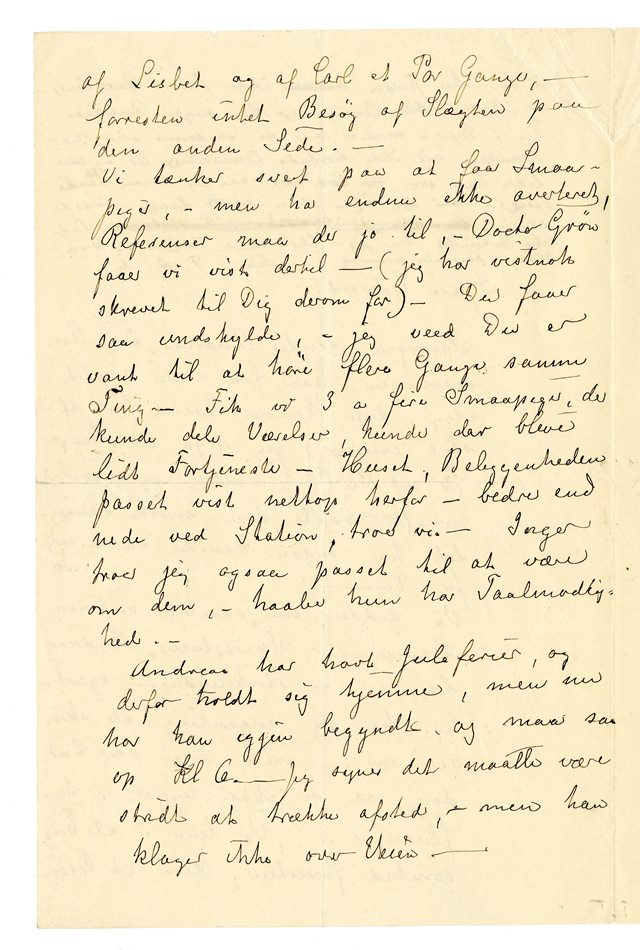 af Lisbet og af Carl et Par Gange, —
forresten intet Besøg af Slægten paa
den anden Side. —
Vi tænker svert paa at faa Smaa-
piger, – men har endnu ikke averteret,
Referenser maa der jo til, – Doctor Grøn
faaer vi vist dertil — (jeg har vistnok
skrevet til Dig derom før) – Du faaer
saa undskylde, – jeg veed Du er
vant til at høre flere Gange samme
Ting — Fik vi 3 a fire Smaapiger, der
kunde dele Værelser, kunde der blive
lidt Fortjeneste — Huset, Beliggenheden
passet vist nettop herfor — bedre end
nede ved Station, troer vi. — Inger
troer jeg ogsaa passet til at være
om dem, – haaber hun har Taalmodig-
hed. —
Andreas har havt Juleferier, og
derfor holdt sig hjemme, men nu
har han igjen begyndt. og maa saa
op Kl 6. — Jeg synes det maatte være
stridt at trække afsted, – men han
klager ikke over Veien —